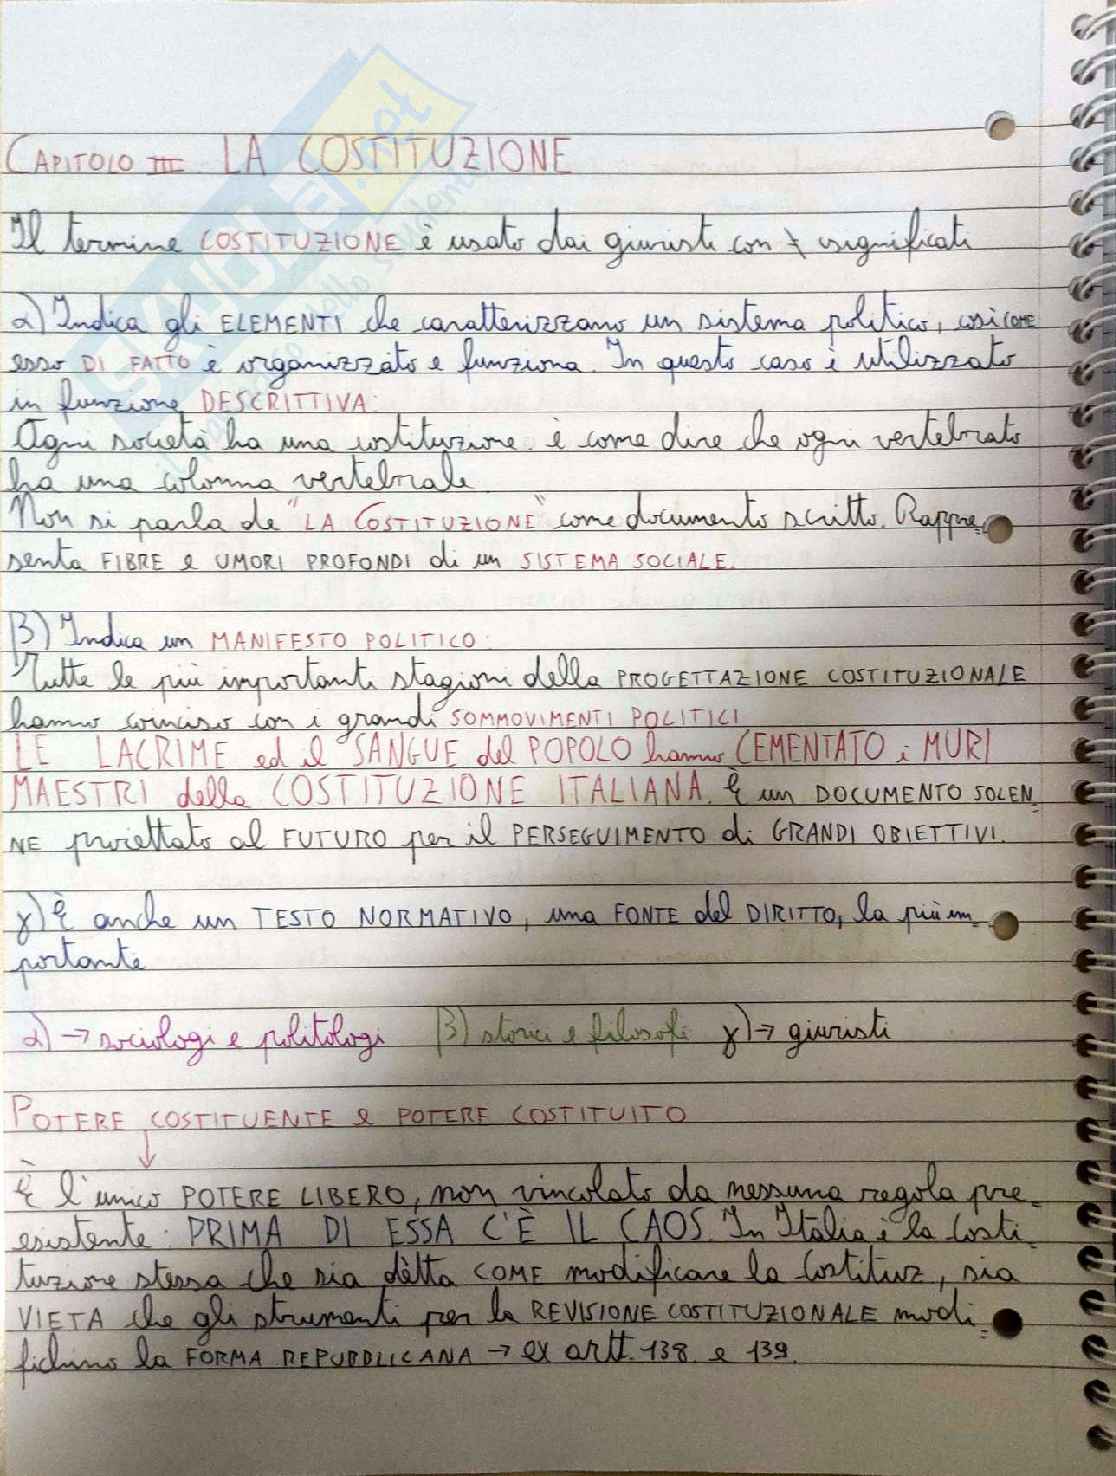 CAPITOLO III LA COSTITUZIONE
Il termine COSTITUZIONE è usato dai giuristi con ≠ significati
α) Indica gli ELEMENTI che caratterizzano un sistema politico, così come
esso DI FATTO è organizzato e funziona. In questo caso è utilizzato
in funzione DESCRITTIVA:
Ogni società ha una costituzione. è come dire che ogni vertebrato
ha una colonna vertebrale.
Non si parla de "LA COSTITUZIONE" come documento scritto. Rappre=
senta FIBRE e UMORI PROFONDI di un SISTEMA SOCIALE.
β) Indica un MANIFESTO POLITICO:
Tutte le più importanti stagioni della PROGETTAZIONE COSTITUZIONALE
hanno coinciso con i grandi SOMMOVIMENTI POLITICI
LE LACRIME ed il SANGUE del POPOLO hanno CEMENTATO i MURI
MAESTRI della COSTITUZIONE ITALIANA. È un DOCUMENTO SOLEN=
NE proiettato al FUTURO per il PERSEGUIMENTO di GRANDI OBIETTIVI.
γ) È anche un TESTO NORMATIVO, una FONTE del DIRITTO, la più im=
portante
α) → sociologi e politologi β) storici e filosofi γ) → giuristi
POTERE COSTITUENTE e POTERE COSTITUITO
↓
È l'unico POTERE LIBERO, non vincolato da nessuna regola pre=
esistente: PRIMA DI ESSA C'È IL CAOS. In Italia è la Costi=
tuzione stessa che sia détta COME modificare la Costituz, sia
VIETA che gli strumenti per la REVISIONE COSTITUZIONALE modi=
fichino la FORMA REPUBBLICANA → ex artt. 138 e 139.